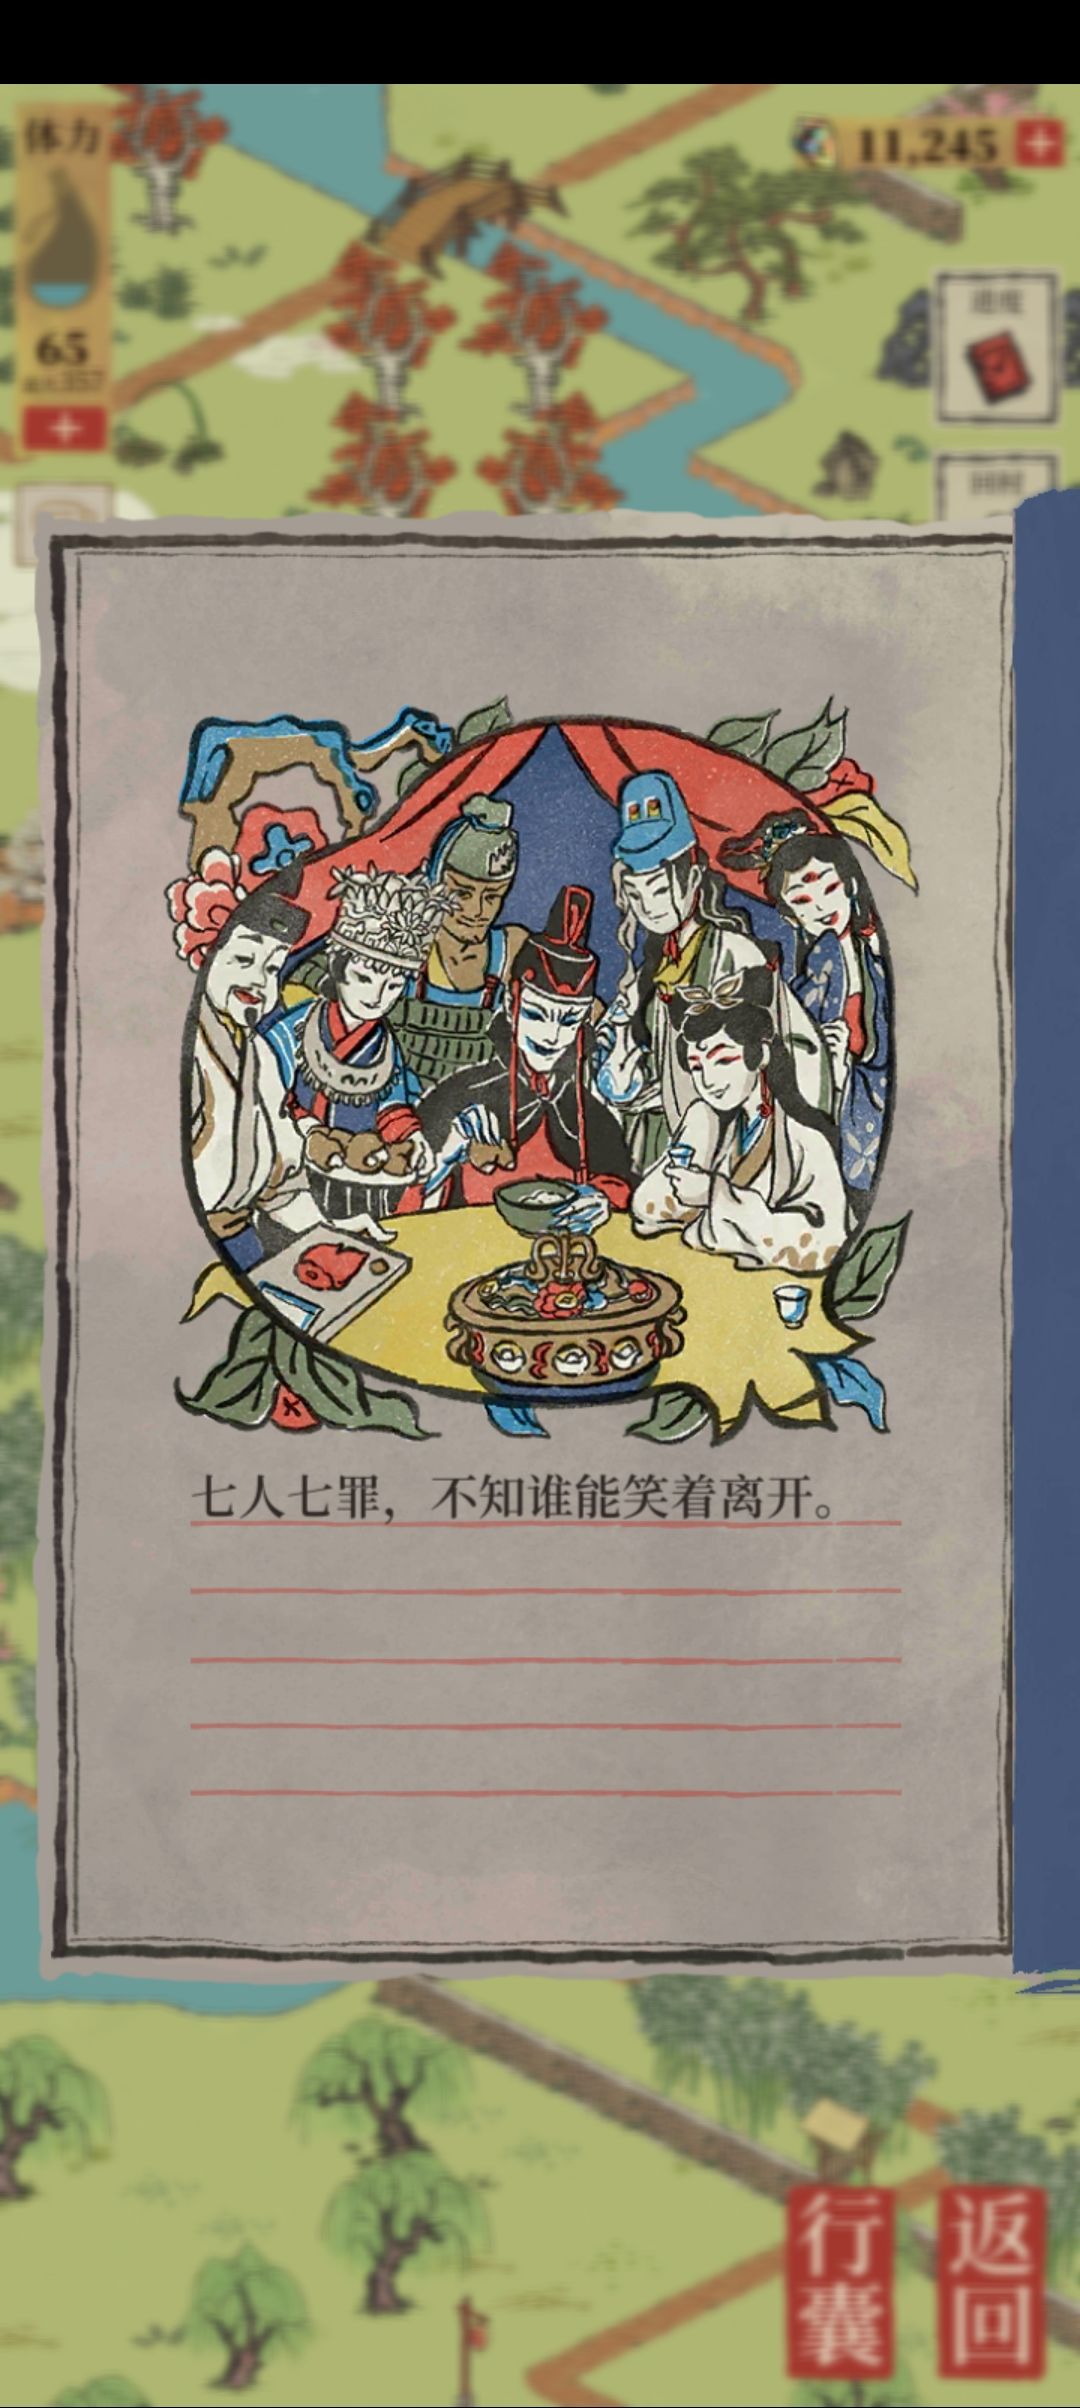 体力
11,245
65
七人七罪，不知谁能笑着离开。
行囊
返回